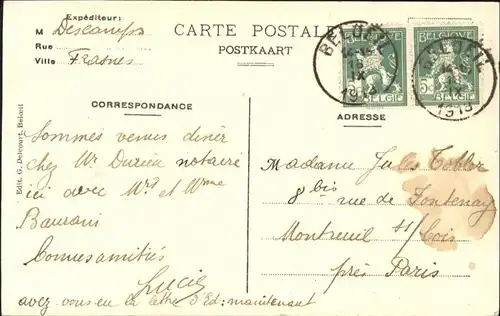 Expéditeur:
M Descamps
Rue
Ville Frasnes
CARTE POSTALE
POSTKAART
BELGIQUE BELGIË
5c
BELGIQUE BELGIË
5c
BELŒIL
1913
BELŒIL
1913
CORRESPONDANCE
ADRESSE
Edit. G. Delcourt, Belœil
Sommes venus diner
chez Mr Durieu notaire
ici avec Mr et Mme
Baurani
Bonnes amitiés
Lucie
avez vous eu la lettre d'Ed: maintenant
Madame Jules Tobler
8 bis rue de Fontenay
Montreuil s/s Bois
près Paris